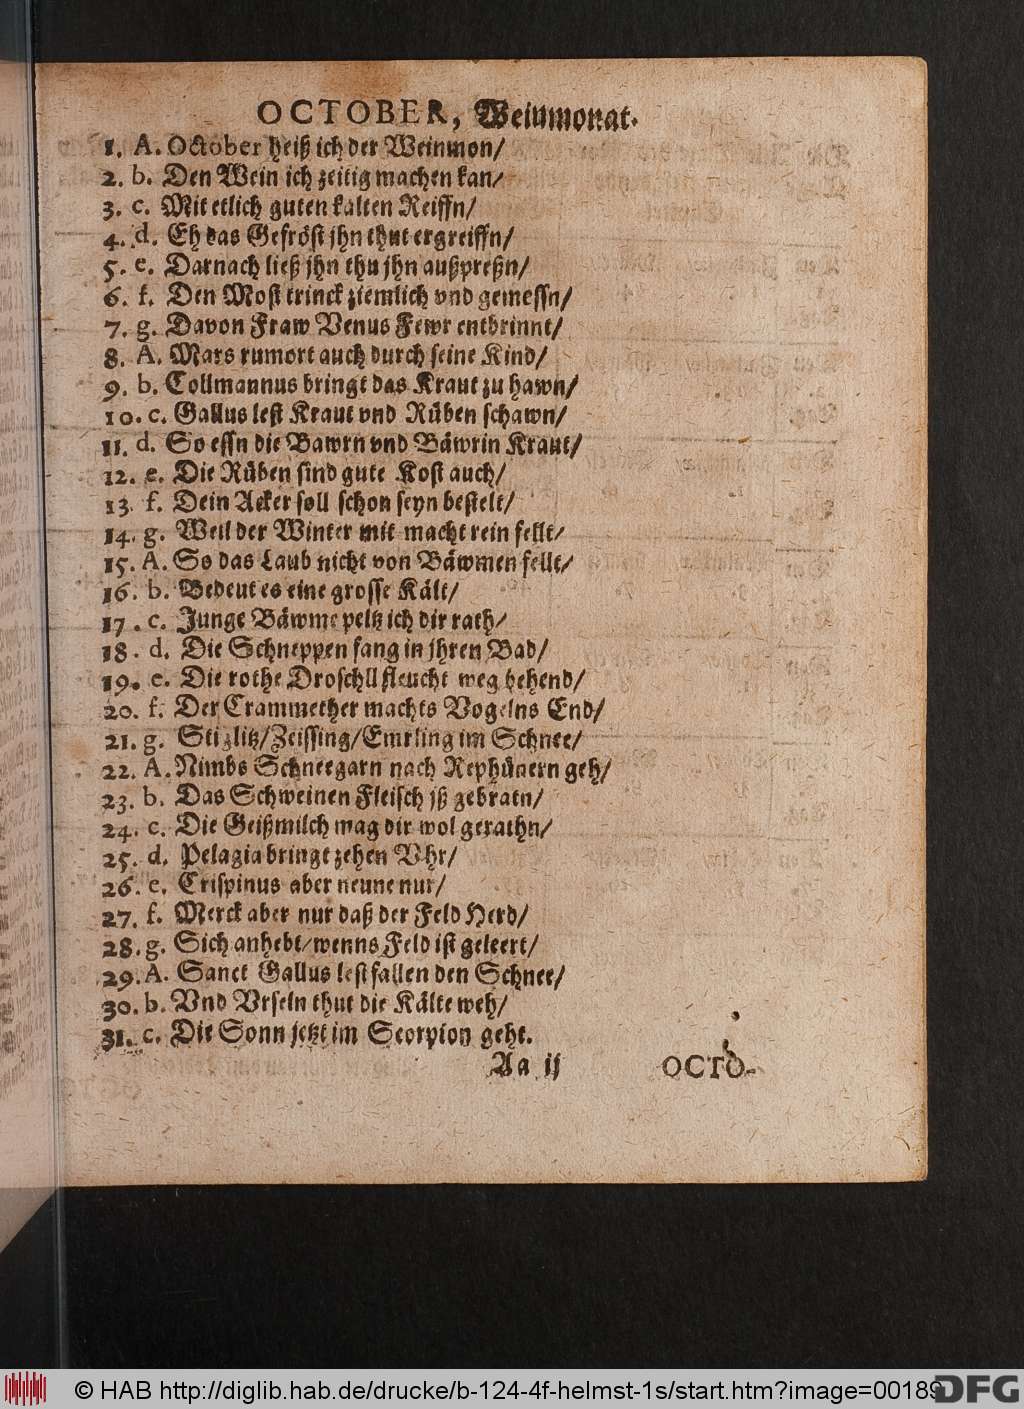 OCTOBER, Weinmonat.
1. A. October heiß ich der Weinmon/
2. b. Den Wein ich zeitig machen kan/
3. c. Mit etlich guten kalten Reiffn/
4. d. Eh das Gefröst jhn thut ergreiffn/
5. e. Darnach ließ jhn thu jhn außpreßn/
6. f. Den Most trinck ziemlich vnd gemessn/
7. g. Davon Fraw Venus Fewr entbrinnt/
8. A. Mars rumort auch durch seine Kind/
9. b. Collmannus bringt das Kraut zu hawn/
10. c. Gallus lest Kraut vnd Rüben schawn/
11. d. So essn die Bawrn vnd Bäwrin Kraut/
12. e. Die Rüben sind gute Kost auch/
13. f. Dein Acker soll schon seyn bestelt/
14. g. Weil der Winter mit macht rein fellt/
15. A. So das Laub nicht von Bäwmen fellt/
16. b. Bedeut es eine grosse Kält/
17. c. Junge Bäwme peltz ich dir rath/
18. d. Die Schneppen fang in jhren Bad/
19. e. Die rothe Droschll fleucht weg behend/
20. f. Der Crammether machts Vogelns End/
21. g. Stizlitz/Zeissing/Emrling im Schnee/
22. A. Nimbs Schneegarn nach Rephünern geh/
23. b. Das Schweinen Fleisch jß gebratn/
24. c. Die Geißmilch mag dir wol gerathn/
25. d. Pelagia bringt zehen Vhr/
26. e. Crispinus aber neune nur/
27. f. Merck aber nur daß der Feld Herd/
28. g. Sich anhebt/wenns Feld ist geleert/
29. A. Sanct Gallus lest fallen den Schnee/
30. b. Vnd Vrseln thut die Kälte weh/
31. c. Die Sonn jetzt im Scorpion geht.
Aa ij OCTO-
© HAB http://diglib.hab.de/drucke/b-124-4f-helmst-1s/start.htm?image=00189
DFG